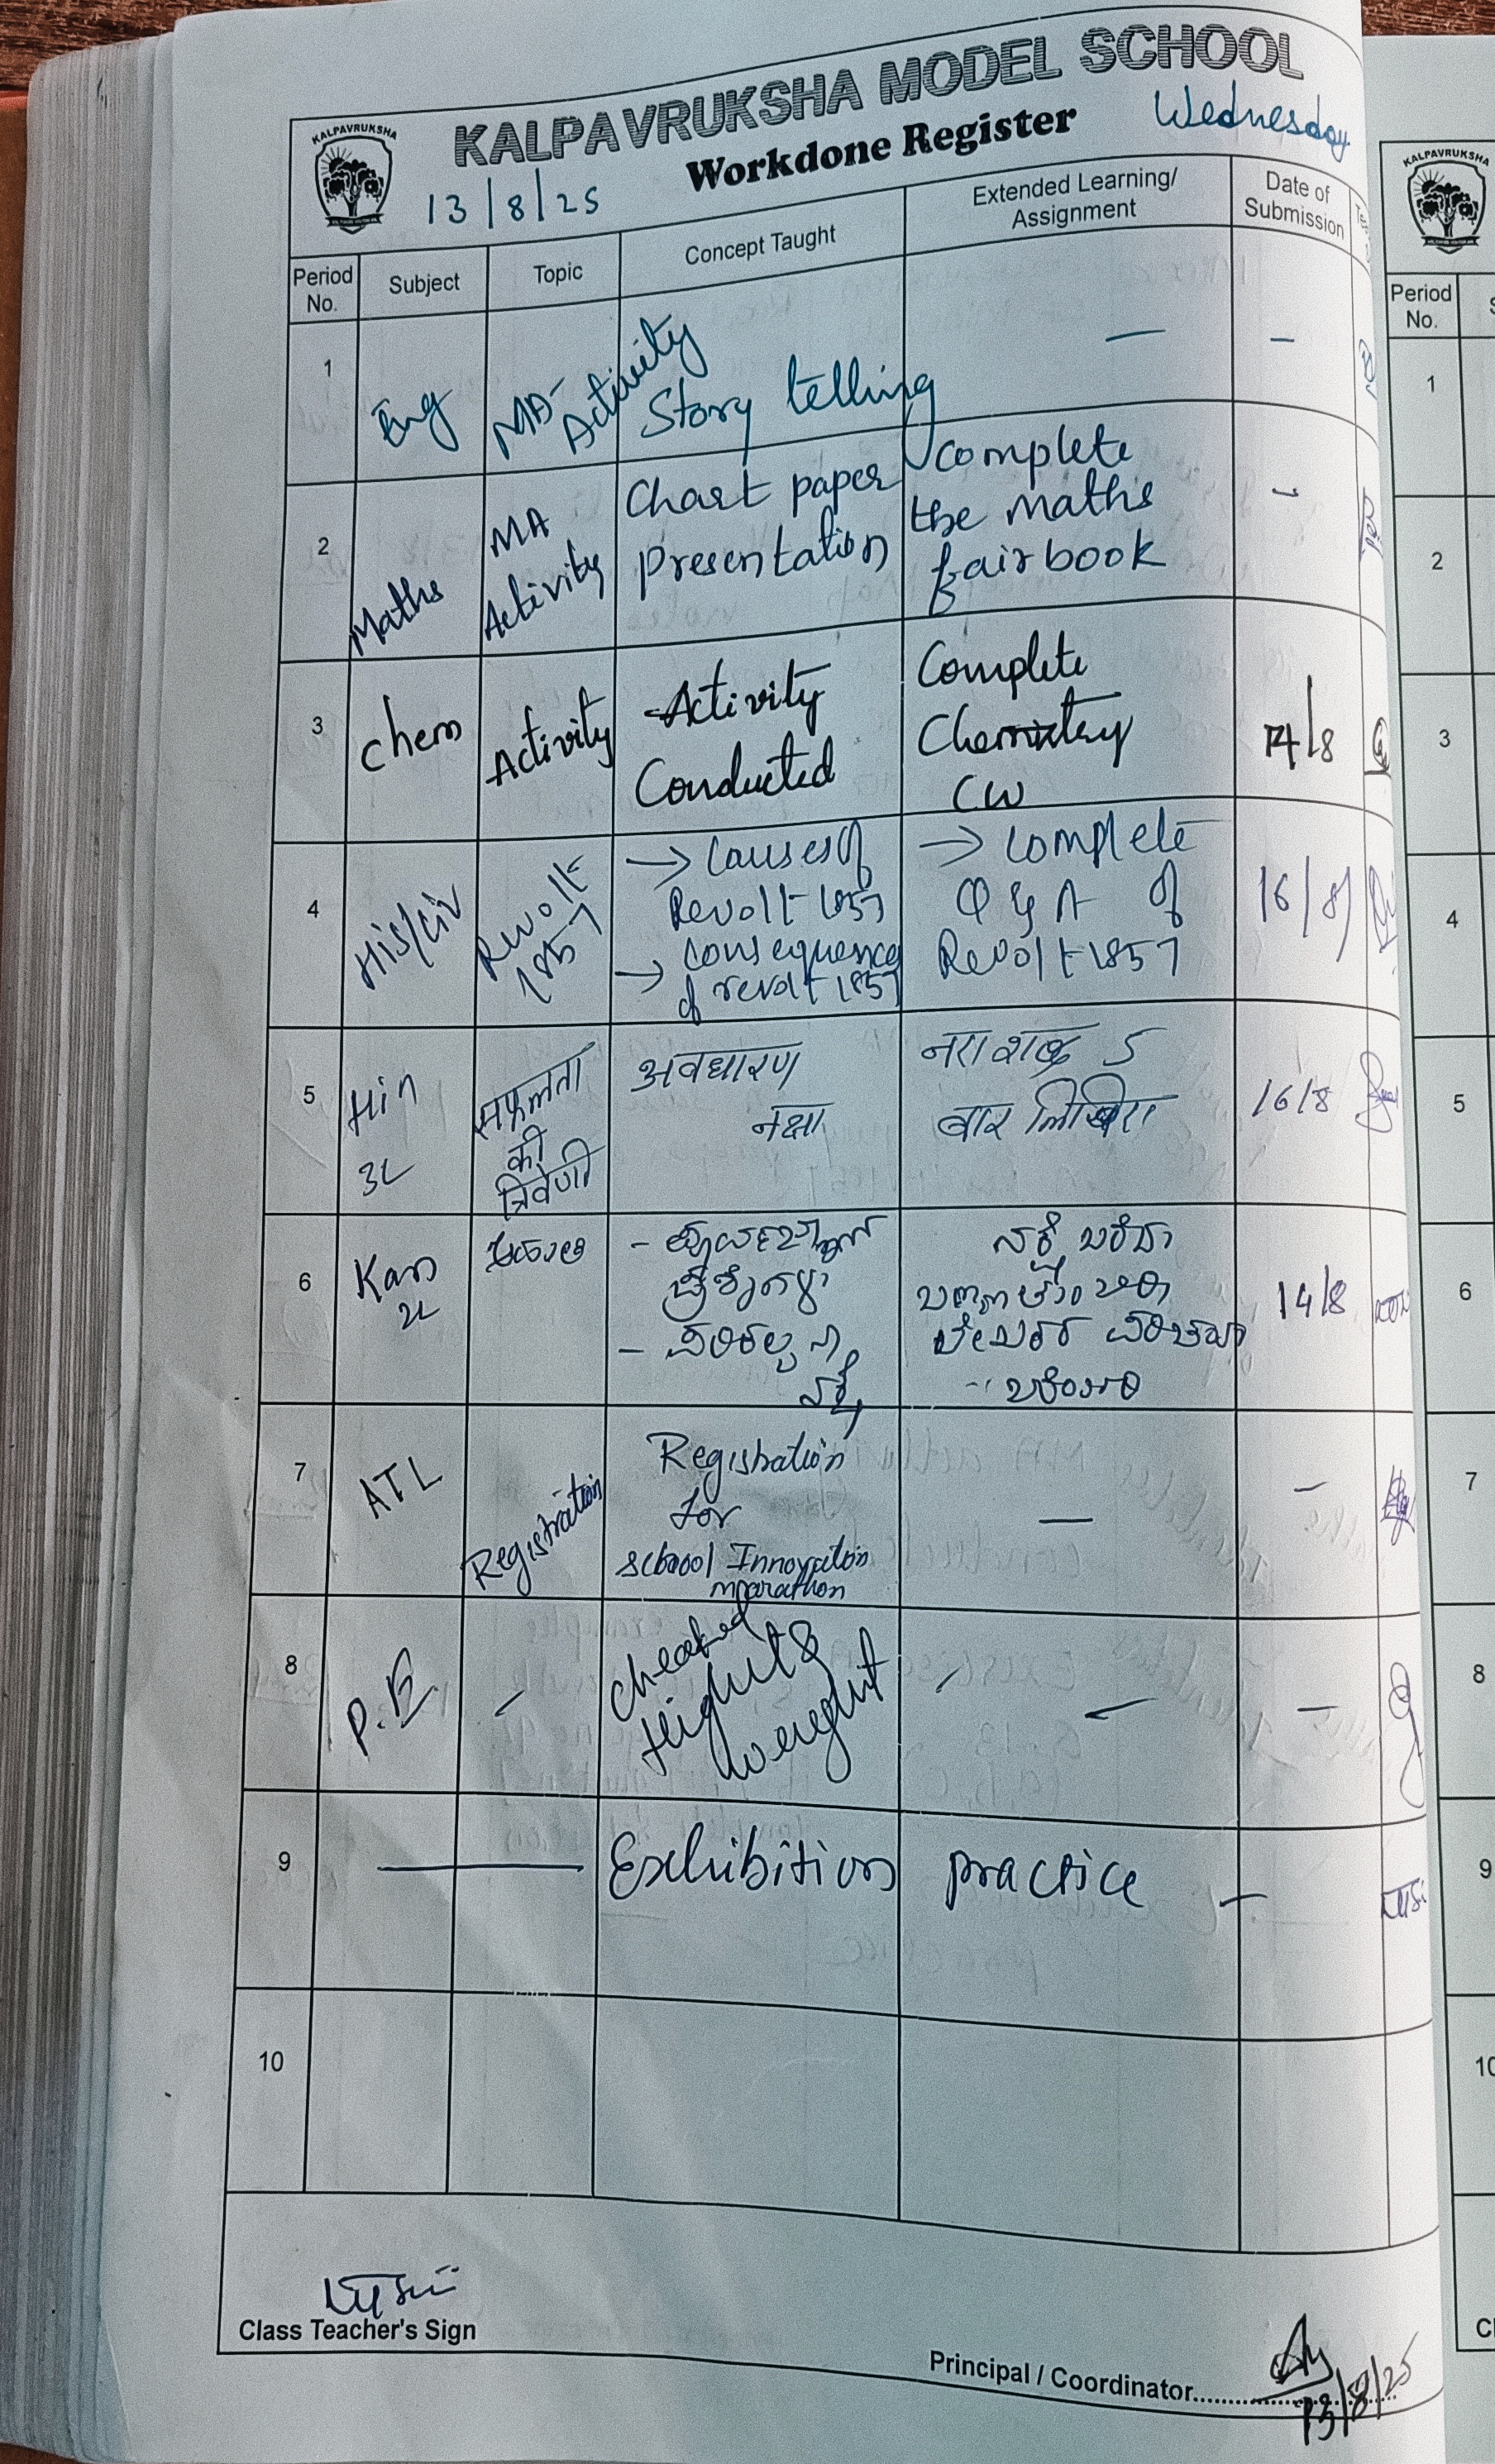 KALPAVRUKSHA MODEL SCHOOL
Workdone Register
Wednesday
KALPAVRUKSHA
13/8/25
Period No.
Subject
Topic
Concept Taught
Extended Learning/
Assignment
Date of
Submission
1
Eng
MA-
Activity
Story telling
—
–
2
Maths
MA
Activity
Chart paper
presentation
complete
the maths
fairbook
–
3
Chem
Activity
Activity
Conducted
Complete
Chemistry
CW
14/8
4
His/Civ
Revolt
1857
→ Causes of
Revolt 1857
→ consequences
of revolt 1857
→ complete
Q & A of
Revolt 1857
16/8
5
Hin
3L
सफलता
की
त्रिवेणी
अवधारण
नक्षा
5
बार
16/8
6
Kan
2L
14/8
7
ATL
Registration
Registration
for
school Innovation
marathon
—
–
8
P.E
–
Height &
weight
–
—
–
9
Exhibition practice
–
10
Class Teacher's Sign
Principal / Coordinator
13/8/25
KALPAVRUKSHA
Period
No.
1
2
3
4
5
6
7
8
9
10